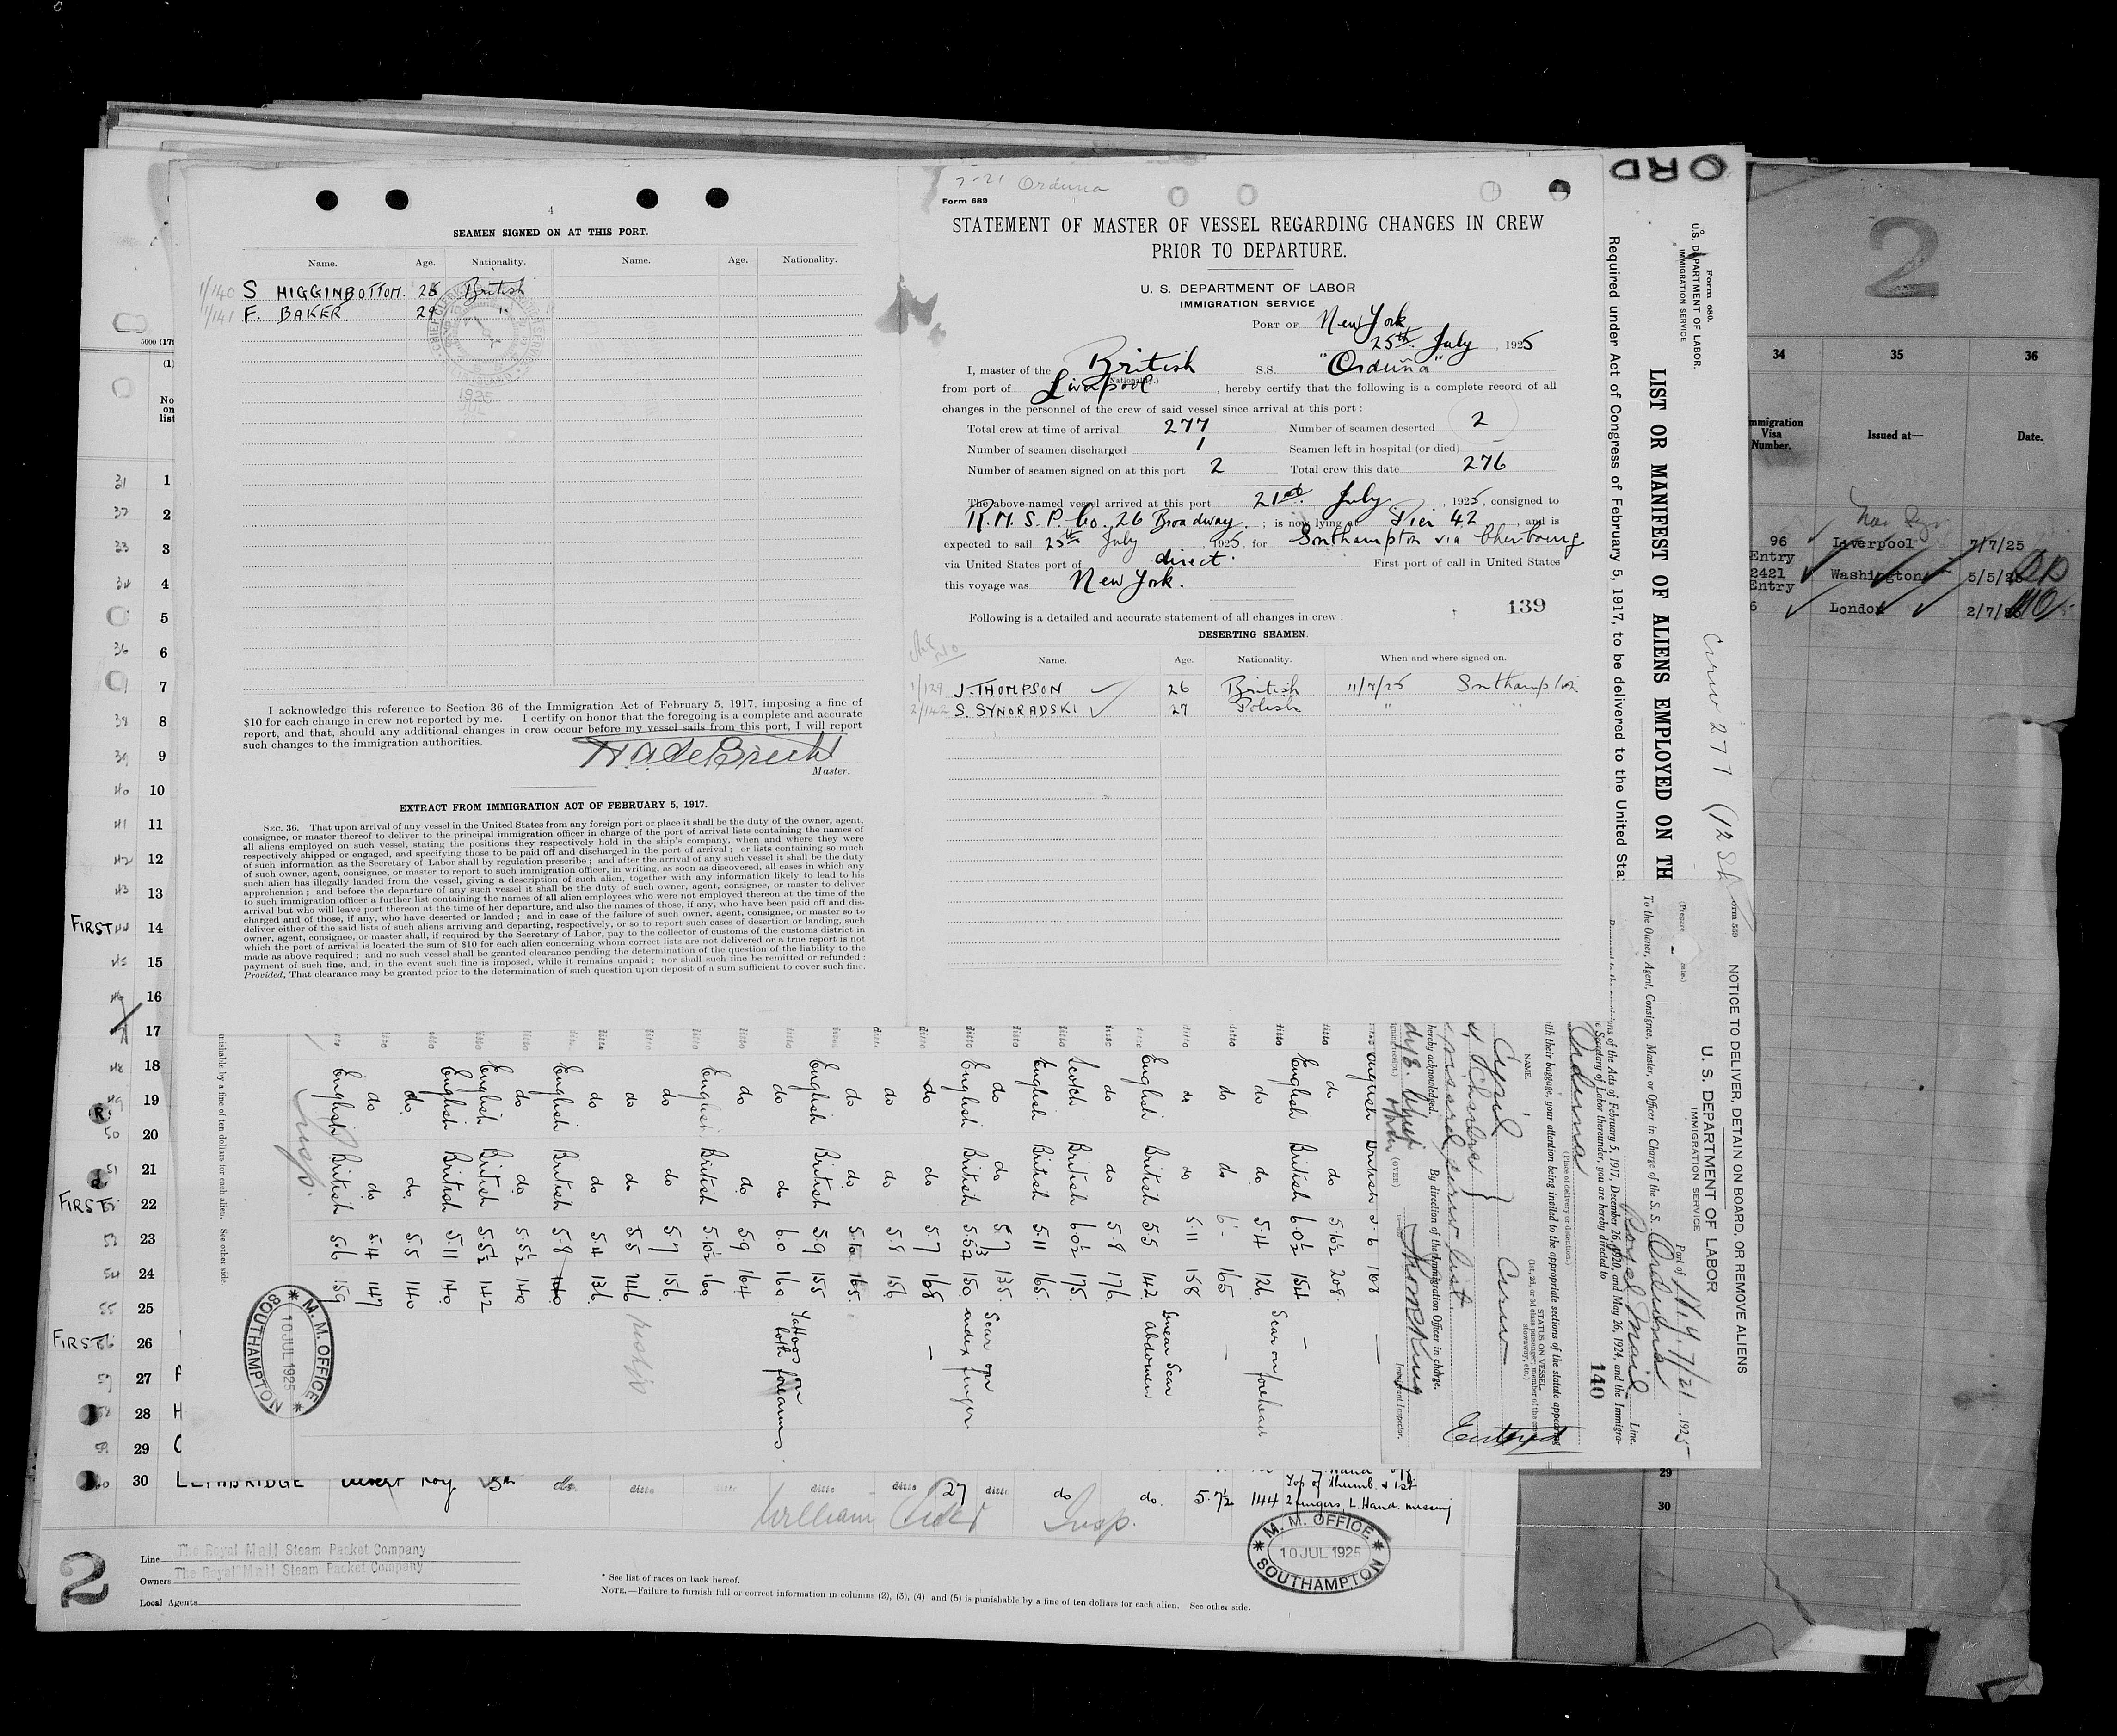 4
SEAMEN SIGNED ON AT THIS PORT.
Name. Age. Nationality. Name. Age. Nationality.
1/140 S HIGGINBOTTOM. 28 British
1/141 F. BAKER 29 "
1925
JUL
I acknowledge this reference to Section 36 of the Immigration Act of February 5, 1917, imposing a fine of
$10 for each change in crew not reported by me. I certify on honor that the foregoing is a complete and accurate
report, and that, should any additional changes in crew occur before my vessel sails from this port, I will report
such changes to the immigration authorities.
Master.
EXTRACT FROM IMMIGRATION ACT OF FEBRUARY 5, 1917.
SEC. 36. That upon arrival of any vessel in the United States from any foreign port or place it shall be the duty of the owner, agent,
consignee, or master thereof to deliver to the principal immigration officer in charge of the port of arrival lists containing the names of
all aliens employed on such vessel, stating the positions they respectively hold in the ship's company, when and where they were
respectively shipped or engaged, and specifying those to be paid off and discharged in the port of arrival; or lists containing so much
of such information as the Secretary of Labor shall by regulation prescribe; and after the arrival of any such vessel it shall be the duty
of such owner, agent, consignee, or master to report to such immigration officer, in writing, as soon as discovered, all cases in which any
such alien has illegally landed from the vessel, giving a description of such alien, together with any information likely to lead to his
apprehension; and before the departure of any such vessel it shall be the duty of such owner, agent, consignee, or master to deliver
to such immigration officer a further list containing the names of all alien employees who were not employed thereon at the time of the
arrival but who will leave port thereon at the time of her departure, and also the names of those, if any, who have been paid off and dis-
charged and of those, if any, who have deserted or landed; and in case of the failure of such owner, agent, consignee, or master so to
deliver either of the said lists of such aliens arriving and departing, respectively, or so to report such cases of desertion or landing, such
owner, agent, consignee, or master shall, if required by the Secretary of Labor, pay to the collector of customs of the customs district in
which the port of arrival is located the sum of $10 for each alien concerning whom correct lists are not delivered or a true report is not
made as above required; and no such vessel shall be granted clearance pending the determination of the question of the liability to the
payment of such fine, and, in the event such fine is imposed, while it remains unpaid; nor shall such fine be remitted or refunded:
Provided, That clearance may be granted prior to the determination of such question upon deposit of a sum sufficient to cover such fine.
7-21 Orduna
Form 689
STATEMENT OF MASTER OF VESSEL REGARDING CHANGES IN CREW
PRIOR TO DEPARTURE.
U. S. DEPARTMENT OF LABOR
IMMIGRATION SERVICE
PORT OF New York
25th July, 1925
I, master of the British S.S. "Orduña"
(Nationality.)
from port of Liverpool, hereby certify that the following is a complete record of all
changes in the personnel of the crew of said vessel since arrival at this port:
Total crew at time of arrival 277 Number of seamen deserted 2
Number of seamen discharged 1 Seamen left in hospital (or died) —
Number of seamen signed on at this port 2 Total crew this date 276
The above-named vessel arrived at this port 21st July, 1925, consigned to
R.M.S.P. Co. 26 Broadway.; is now lying at Pier 42, and is
expected to sail 25th July, 1925, for Southampton via Cherbourg
via United States port of direct. First port of call in United States
this voyage was New York.
139
Following is a detailed and accurate statement of all changes in crew:
DESERTING SEAMEN.
Name. Age. Nationality. When and where signed on.
1/129 J. THOMPSON ✓ 26 British 11/7/25 Southampton
2/142 S. SYNORADSKI ✓ 27 Polish " "
ORD
Form 680.
U.S. DEPARTMENT OF LABOR.
IMMIGRATION SERVICE
LIST OR MANIFEST OF ALIENS EMPLOYED ON TH
Required under Act of Congress of February 5, 1917, to be delivered to the United Sta
Crew 277
Form 559
NOTICE TO DELIVER, DETAIN ON BOARD, OR REMOVE ALIENS
U. S. DEPARTMENT OF LABOR
IMMIGRATION SERVICE
Port of N.Y. 7/21, 1925
To the Owner, Agent, Consignee, Master, or Officer in Charge of the S. S. Orduna
Royal Mail Line.
ons of the Acts of February 5, 1917, December 26, 1920, and May 26, 1924, and the Immigra-
e Secretary of Labor thereunder, you are hereby directed to
140
(Place of delivery or detention.)
ith their baggage, your attention being invited to the appropriate sections of the statute appearing
NAME. STATUS ON VESSEL
(1st, 2d, or 3d class passenger; member of the crew,
stowaway, etc.)
Cyril Crew
hereby acknowledged. By direction of the Immigration Officer in charge.
(OVER)
Immigrant Inspector.
2
34 35 36
mmigration
Visa
Number. Issued at— Date.
96 Liverpool 7/7/25
Entry
2421 Washington 5/5/25
Entry
6 London
29
30
5000
(1)
No
on
list
1
2
3
4
5
6
7
8
9
10
11
12
13
FIRST 14
15
16
17
18
19
20
21
FIRST 22
23
24
25
FIRST 26
27
28
29
nishable by a fine of ten dollars for each alien. See other side.
English British 5.6 159
do do 5.4 147
do do 5.5 140
English British 5.11 140
English British 5.5½ 142
do do 5.5½ 140
English British 5.8 140
do do 5.4 136
do do 5.5 146
do do 5.7 156
English British 5.10½ 160
do do 5.9 164
do do 6.0 160 Tattoos on both forearms
English British 5.9 155
do do 5.10 165
do do 5.8 156
do do 5.7 168 —
English British 5.5¾ 150 Scar on index finger
do do 5.7 135
English British 5.11 165
Scotch British 6.0½ 175
do do 5.8 176
English British 5.5 142 Linear Scar abdomen
do do 5.11 158
do do 6'- 165 —
do do 5.4 126 Scar on forehead
English British 6.0½ 154 —
do do 5.10½ 208
Insp.
M. M. OFFICE
10 JUL 1925
SOUTHAMPTON
30 LETHBRIDGE Albert Roy ditto ditto ditto ditto 27 ditto do do. 5.7½ 144 Top of thumb & 1st
2 fingers L. Hand. missing
William Insp.
M. M. OFFICE
10 JUL 1925
SOUTHAMPTON
2
Line The Royal Mail Steam Packet Company
Owners The Royal Mail Steam Packet Company
Local Agents
* See list of races on back hereof.
NOTE.—Failure to furnish full or correct information in columns (2), (3), (4) and (5) is punishable by a fine of ten dollars for each alien. See other side.